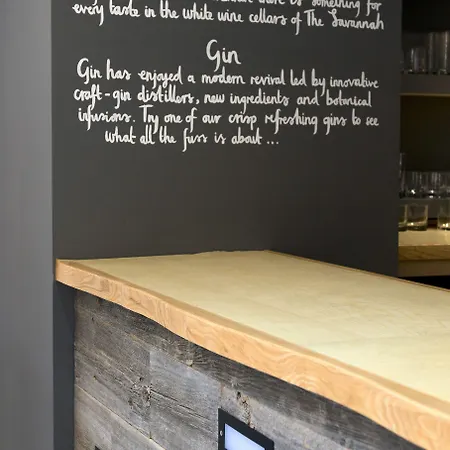 there is something for
every taste in the white wine cellars of The Savannah
Gin
Gin has enjoyed a modern revival led by innovative
craft-gin distillers, new ingredients and botanical
infusions. Try one of our crisp refreshing gins to see
what all the fuss is about ...